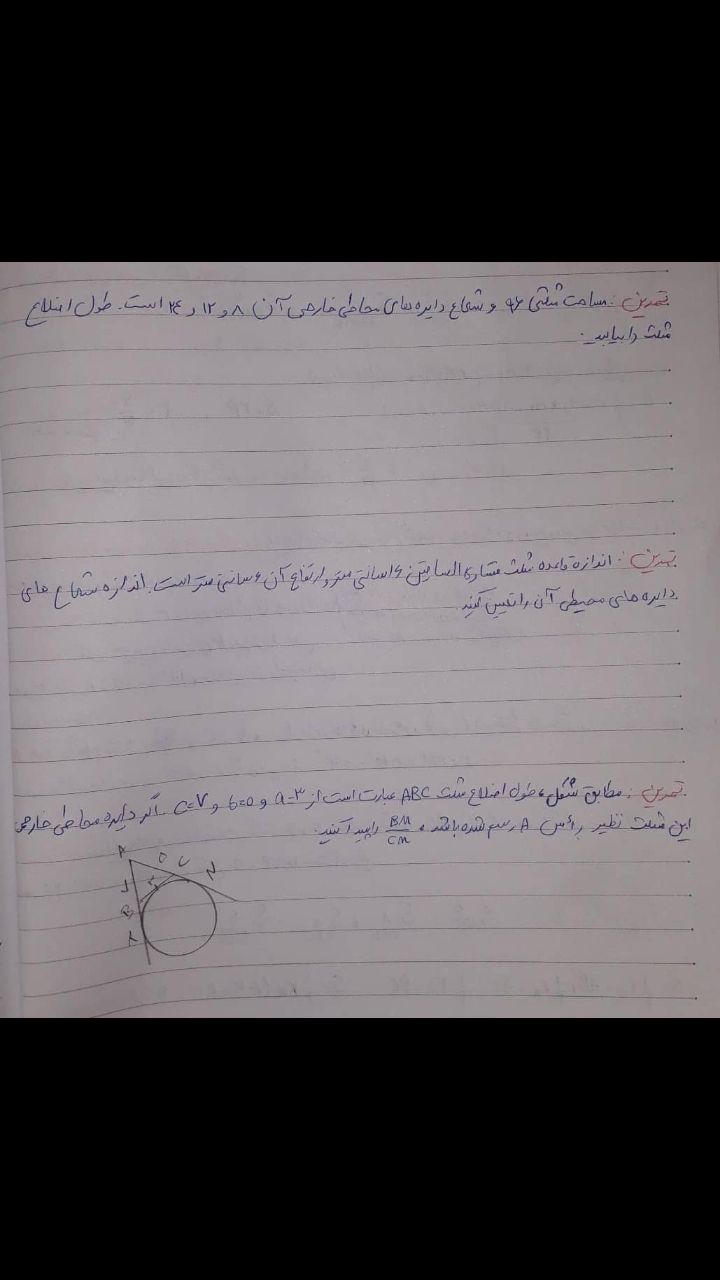 تمرین: مساحت مثلثی ۹۶ و شعاع دایره‌های محاطی خارجی آن ۸ و ۱۲ و ۲۴ است. طول اضلاع
مثلث را بیابید.
تمرین: اندازه قاعده مثلث متساوی الساقین ۱۶ سانتی متر و ارتفاع آن ۶ سانتی متر است. اندازه شعاع های
دایره های محیطی آن را تعیین کنید
تمرین: مطابق شکل، طول اضلاع مثلث ABC عبارت است از a=۳ و b=۵ و c=۷. اگر دایره محاطی خارجی
این مثلث نظیر رأس A رسم شده باشد، BM/CM را پیدا کنید.
A ۵ C N
۷ ۳
B